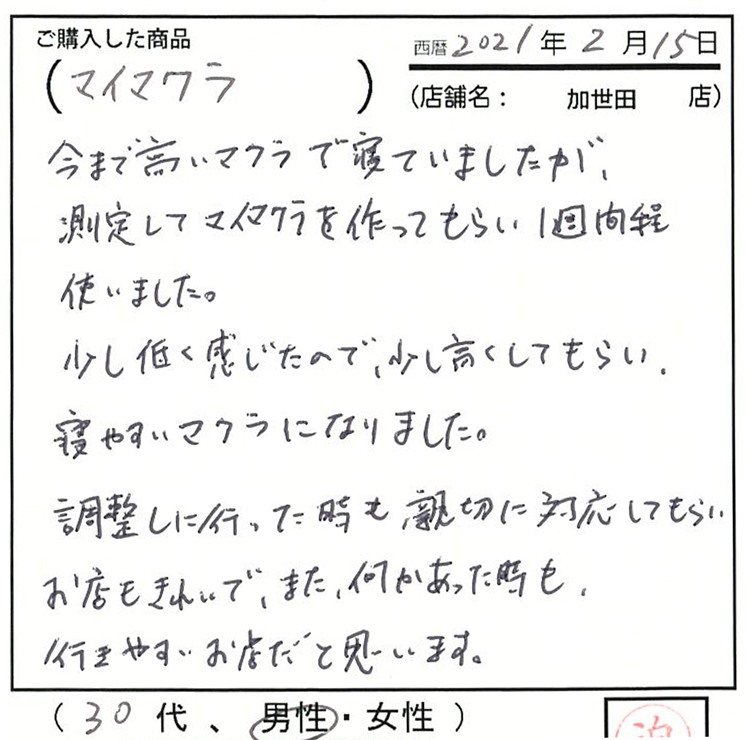 ご購入した商品
西暦2021年2月15日
(マイマクラ)
(店舗名: 加世田 店)
今まで高いマクラで寝ていましたが、
測定してマイマクラを作ってもらい1週間程
使いました。
少し低く感じたので、少し高くしてもらい、
寝やすいマクラになりました。
調整しに行った時も親切に対応してもらい
お店もきれいで、また、何かあった時も、
行きやすいお店だと思います。
(30代、男性・女性)